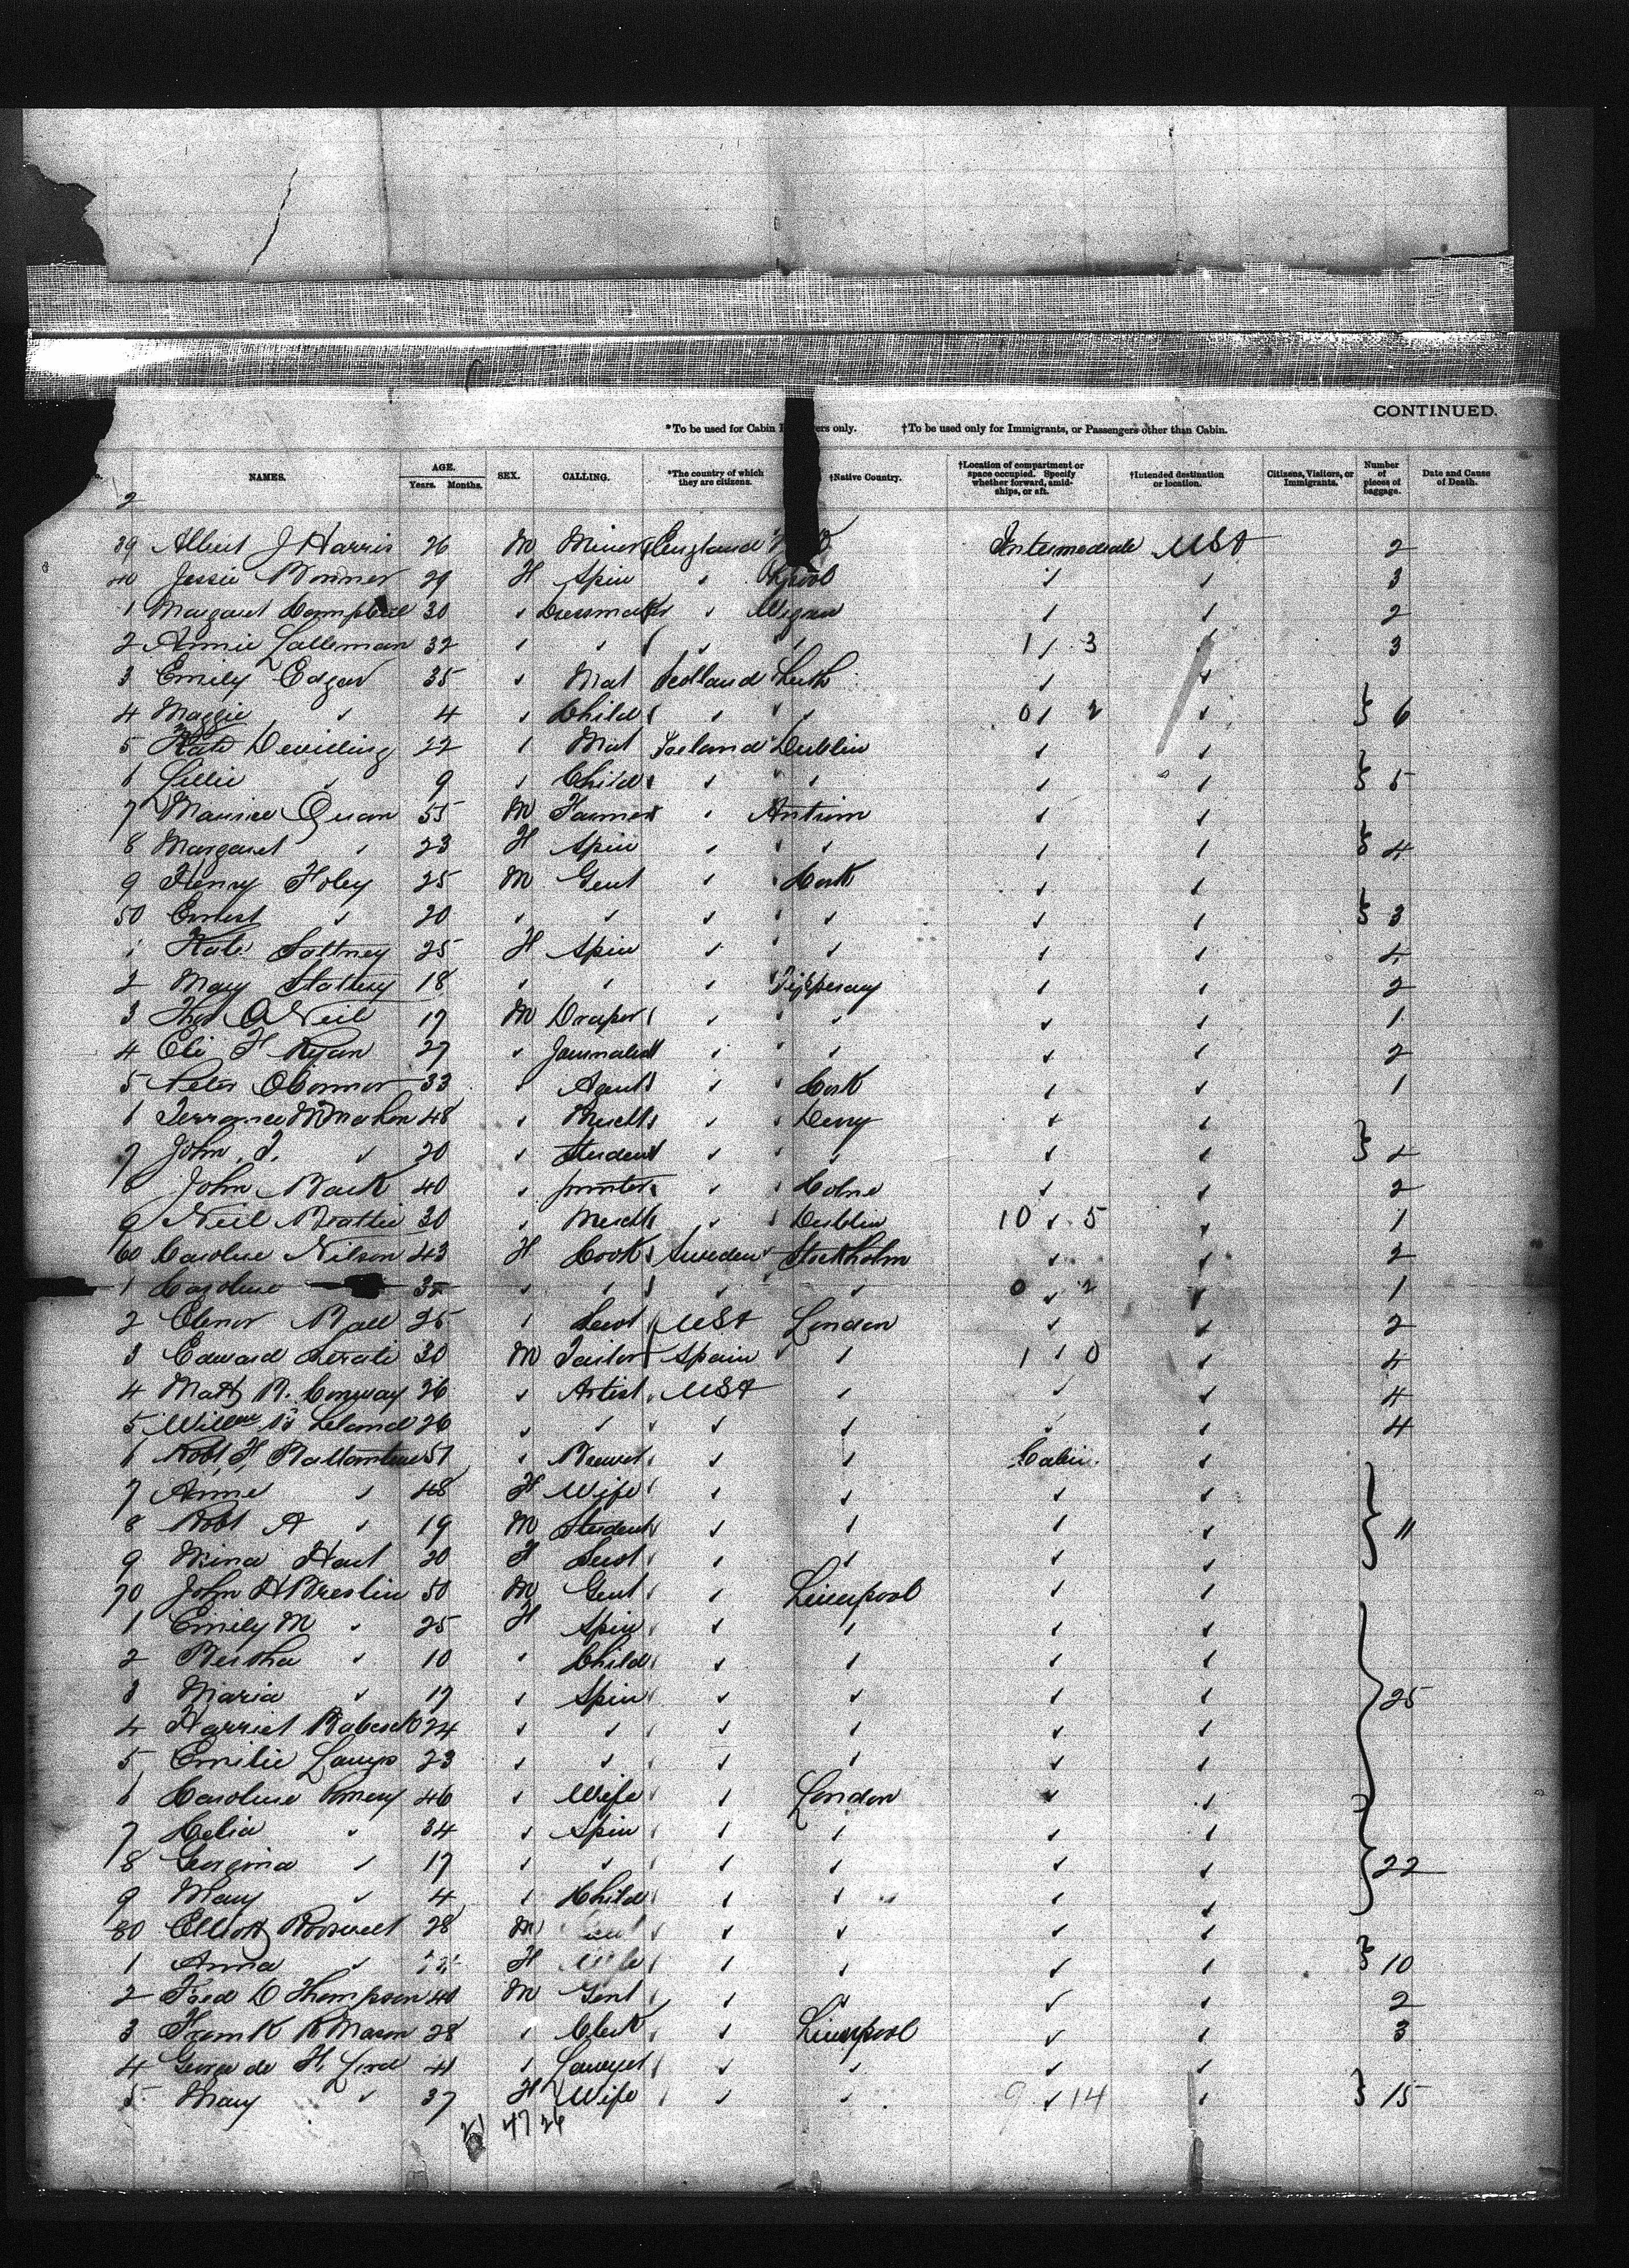 CONTINUED.
*To be used for Cabin ers only. †To be used only for Immigrants, or Passengers other than Cabin.
NAMES. AGE. Years. Months. SEX. CALLING. *The country of which they are citizens. †Native Country. †Location of compartment or space occupied. Specify whether forward, amidships, or aft. †Intended destination or location. Citizens, Visitors, or Immigrants. Number of pieces of baggage. Date and Cause of Death.
2
39 Albert J Harris 26 M Miner England Intermediate USA 2
40 Jessie Bonner 29 F Spin ✓ L'pool ✓ ✓ 3
1 Margaret Campbell 30 ✓ Dressmaker ✓ Wigan ✓ ✓ 2
2 Annie Lalleman 32 ✓ ✓ ✓ ✓ 1 ✓ 3 ✓ 3
3 Emily Edgar 35 ✓ Mat Scotland Leith ✓ ✓
4 Maggie ✓ 4 ✓ Child ✓ ✓ 0 ✓ 2 ✓ } 6
5 Kate 22 ✓ Mat Ireland Dublin ✓ ✓
6 Lillie ✓ 9 ✓ Child ✓ ✓ ✓ ✓ } 5
7 Maurice Quan 55 M Farmer ✓ Antrim ✓ ✓
8 Margaret ✓ 23 F Spin ✓ ✓ ✓ ✓ } 4
9 Henry Foley 25 M Gent ✓ Cork ✓ ✓
50 Ernest ✓ 20 ✓ ✓ ✓ ✓ ✓ ✓ } 3
1 Kate 25 F Spin ✓ ✓ ✓ ✓ 4
2 Mary Slattery 18 ✓ ✓ ✓ Tipperary ✓ ✓ 2
3 Thos O'Neil 17 M Draper ✓ ✓ ✓ ✓ 1
4 Eli F Ryan 27 ✓ Journalist ✓ ✓ ✓ ✓ 2
5 Peter O'Connor 33 ✓ Agent ✓ Cork ✓ ✓ 1
6 Terrance McMahon 48 ✓ Mercht ✓ Derry ✓ ✓
7 John. J. ✓ 20 ✓ Student ✓ ✓ ✓ ✓ } 4
8 John Back 40 ✓ printer ✓ Colne ✓ ✓ 2
9 Neil Beattie 30 ✓ Mercht ✓ Dublin 10 ✓ 5 ✓ 1
60 Caroline Nilson 43 F Cook Sweden Stockholm ✓ ✓ 2
1 Caroline 35 ✓ ✓ ✓ ✓ 0 ✓ 2 ✓ 1
2 Elenor Ball 25 ✓ Servt USA London ✓ ✓ 2
3 Edward 30 M Tailor Spain ✓ 1 ✓ 0 ✓ 4
4 Matt R. Conway 26 ✓ Artist USA ✓ ✓ ✓ 4
5 Willm B Leland 26 ✓ ✓ ✓ ✓ ✓ ✓ 4
6 Robt F. Ballantine 51 ✓ Brewer ✓ ✓ Cabin ✓
7 Anne ✓ 48 F Wife ✓ ✓ ✓ ✓
8 Robt A ✓ 19 M Student ✓ ✓ ✓ ✓ } 11
9 Mina Hart 20 F Servt ✓ ✓ ✓ ✓
70 John H Breslin 50 M Gent ✓ Liverpool ✓ ✓
1 Emily M ✓ 25 F Spin ✓ ✓ ✓ ✓
2 Bertha ✓ 10 ✓ Child ✓ ✓ ✓ ✓
3 Maria ✓ 17 ✓ Spin ✓ ✓ ✓ ✓ } 25
4 Harriet 24 ✓ ✓ ✓ ✓ ✓ ✓
5 Emilie 23 ✓ ✓ ✓ ✓ ✓ ✓
6 Caroline 46 ✓ Wife ✓ London ✓ ✓
7 Celia ✓ 34 ✓ Spin ✓ ✓ ✓ ✓
8 Georgina ✓ 17 ✓ ✓ ✓ ✓ ✓ ✓ } 22
9 Mary ✓ 4 ✓ Child ✓ ✓ ✓ ✓
80 Elliott Roosevelt 28 M Gent ✓ ✓ ✓ ✓
1 Anna ✓ F Wife ✓ ✓ ✓ ✓ } 10
2 Fred D Thompson 40 M Gent ✓ ✓ ✓ ✓ 2
3 Frank R Mason 28 ✓ Clerk ✓ Liverpool ✓ ✓ 3
4 George de F. Lord 41 ✓ Lawyer ✓ ✓ ✓ ✓
5 Mary ✓ 37 F Wife ✓ ✓ 9 ✓ 14 ✓ } 15
21 47 26